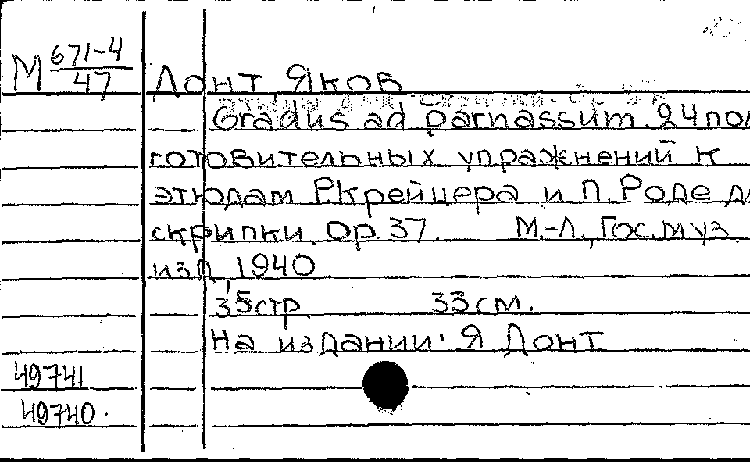 М 671-4
47
Донт, Яков
Gradus ad parnassum 24 под
готовительных упражнений к
этюдам Р.Крейцера и П. Роде дл
скрипки. Ор 37. М.-Л., Гос. муз
изд, 1940
35стр 33 см.
На издании: Я Донт
49741
49740.